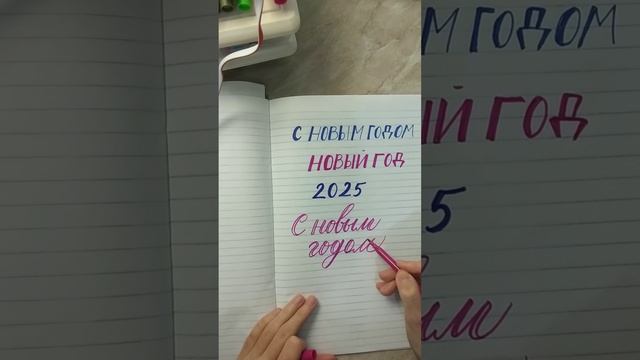 С НОВЫМ ГОДОМ
НОВЫЙ ГОД
2025
С новым
годом